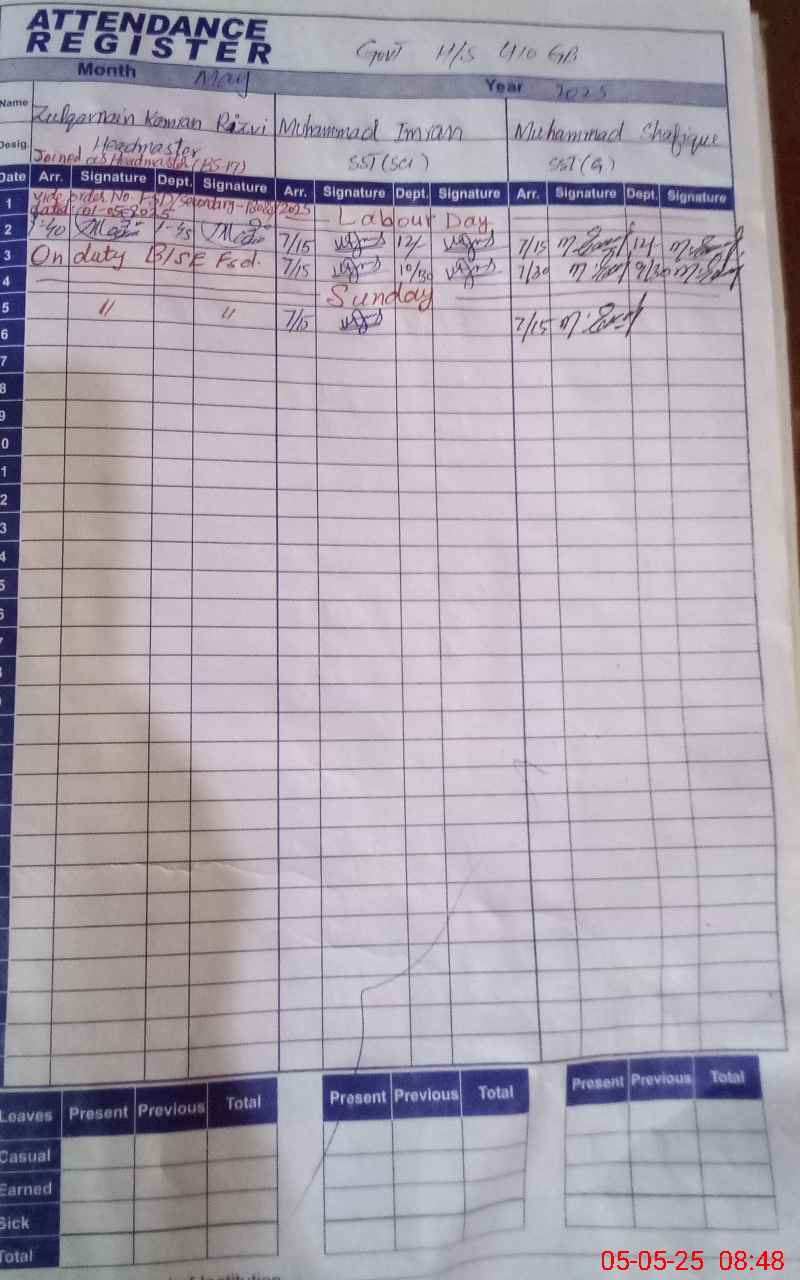 ATTENDANCE
REGISTER
Govt H/S 410 GB
Month May Year 2025
Name Zulqarnain Kamran Rizvi Muhammad Imran Muhammad Shafique
Desig. Headmaster SST(SCI) SST(G)
Joined as Headmaster (BS-17)
Date Arr. Signature Dept. Signature Arr. Signature Dept. Signature Arr. Signature Dept. Signature
1 vide order No. Labour Day
dated 01-05-2025
2 7-40 1-45 7/15 12/ 7/15 12/
3 On duty BISE Fsd. 7/15 10/30 7/30 9/30
4 Sunday
5 " " 7/15 7/15
6
7
8
9
0
1
2
3
4
5
6
7
Leaves Present Previous Total Present Previous Total Present Previous Total
Casual
Earned
Sick
Total
05-05-25 08:48